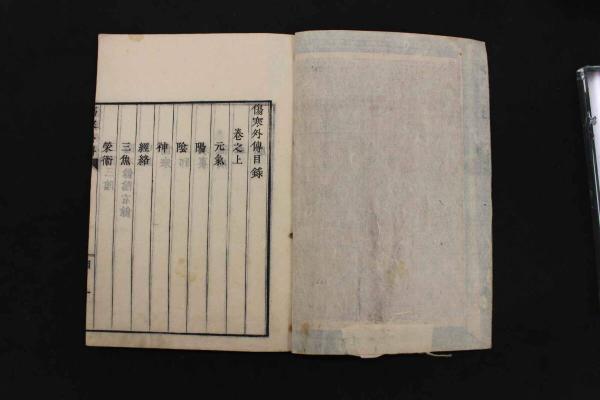 傷寒外傳目錄
卷之上
元氣
陽
陰
神
經絡
三焦
榮衞